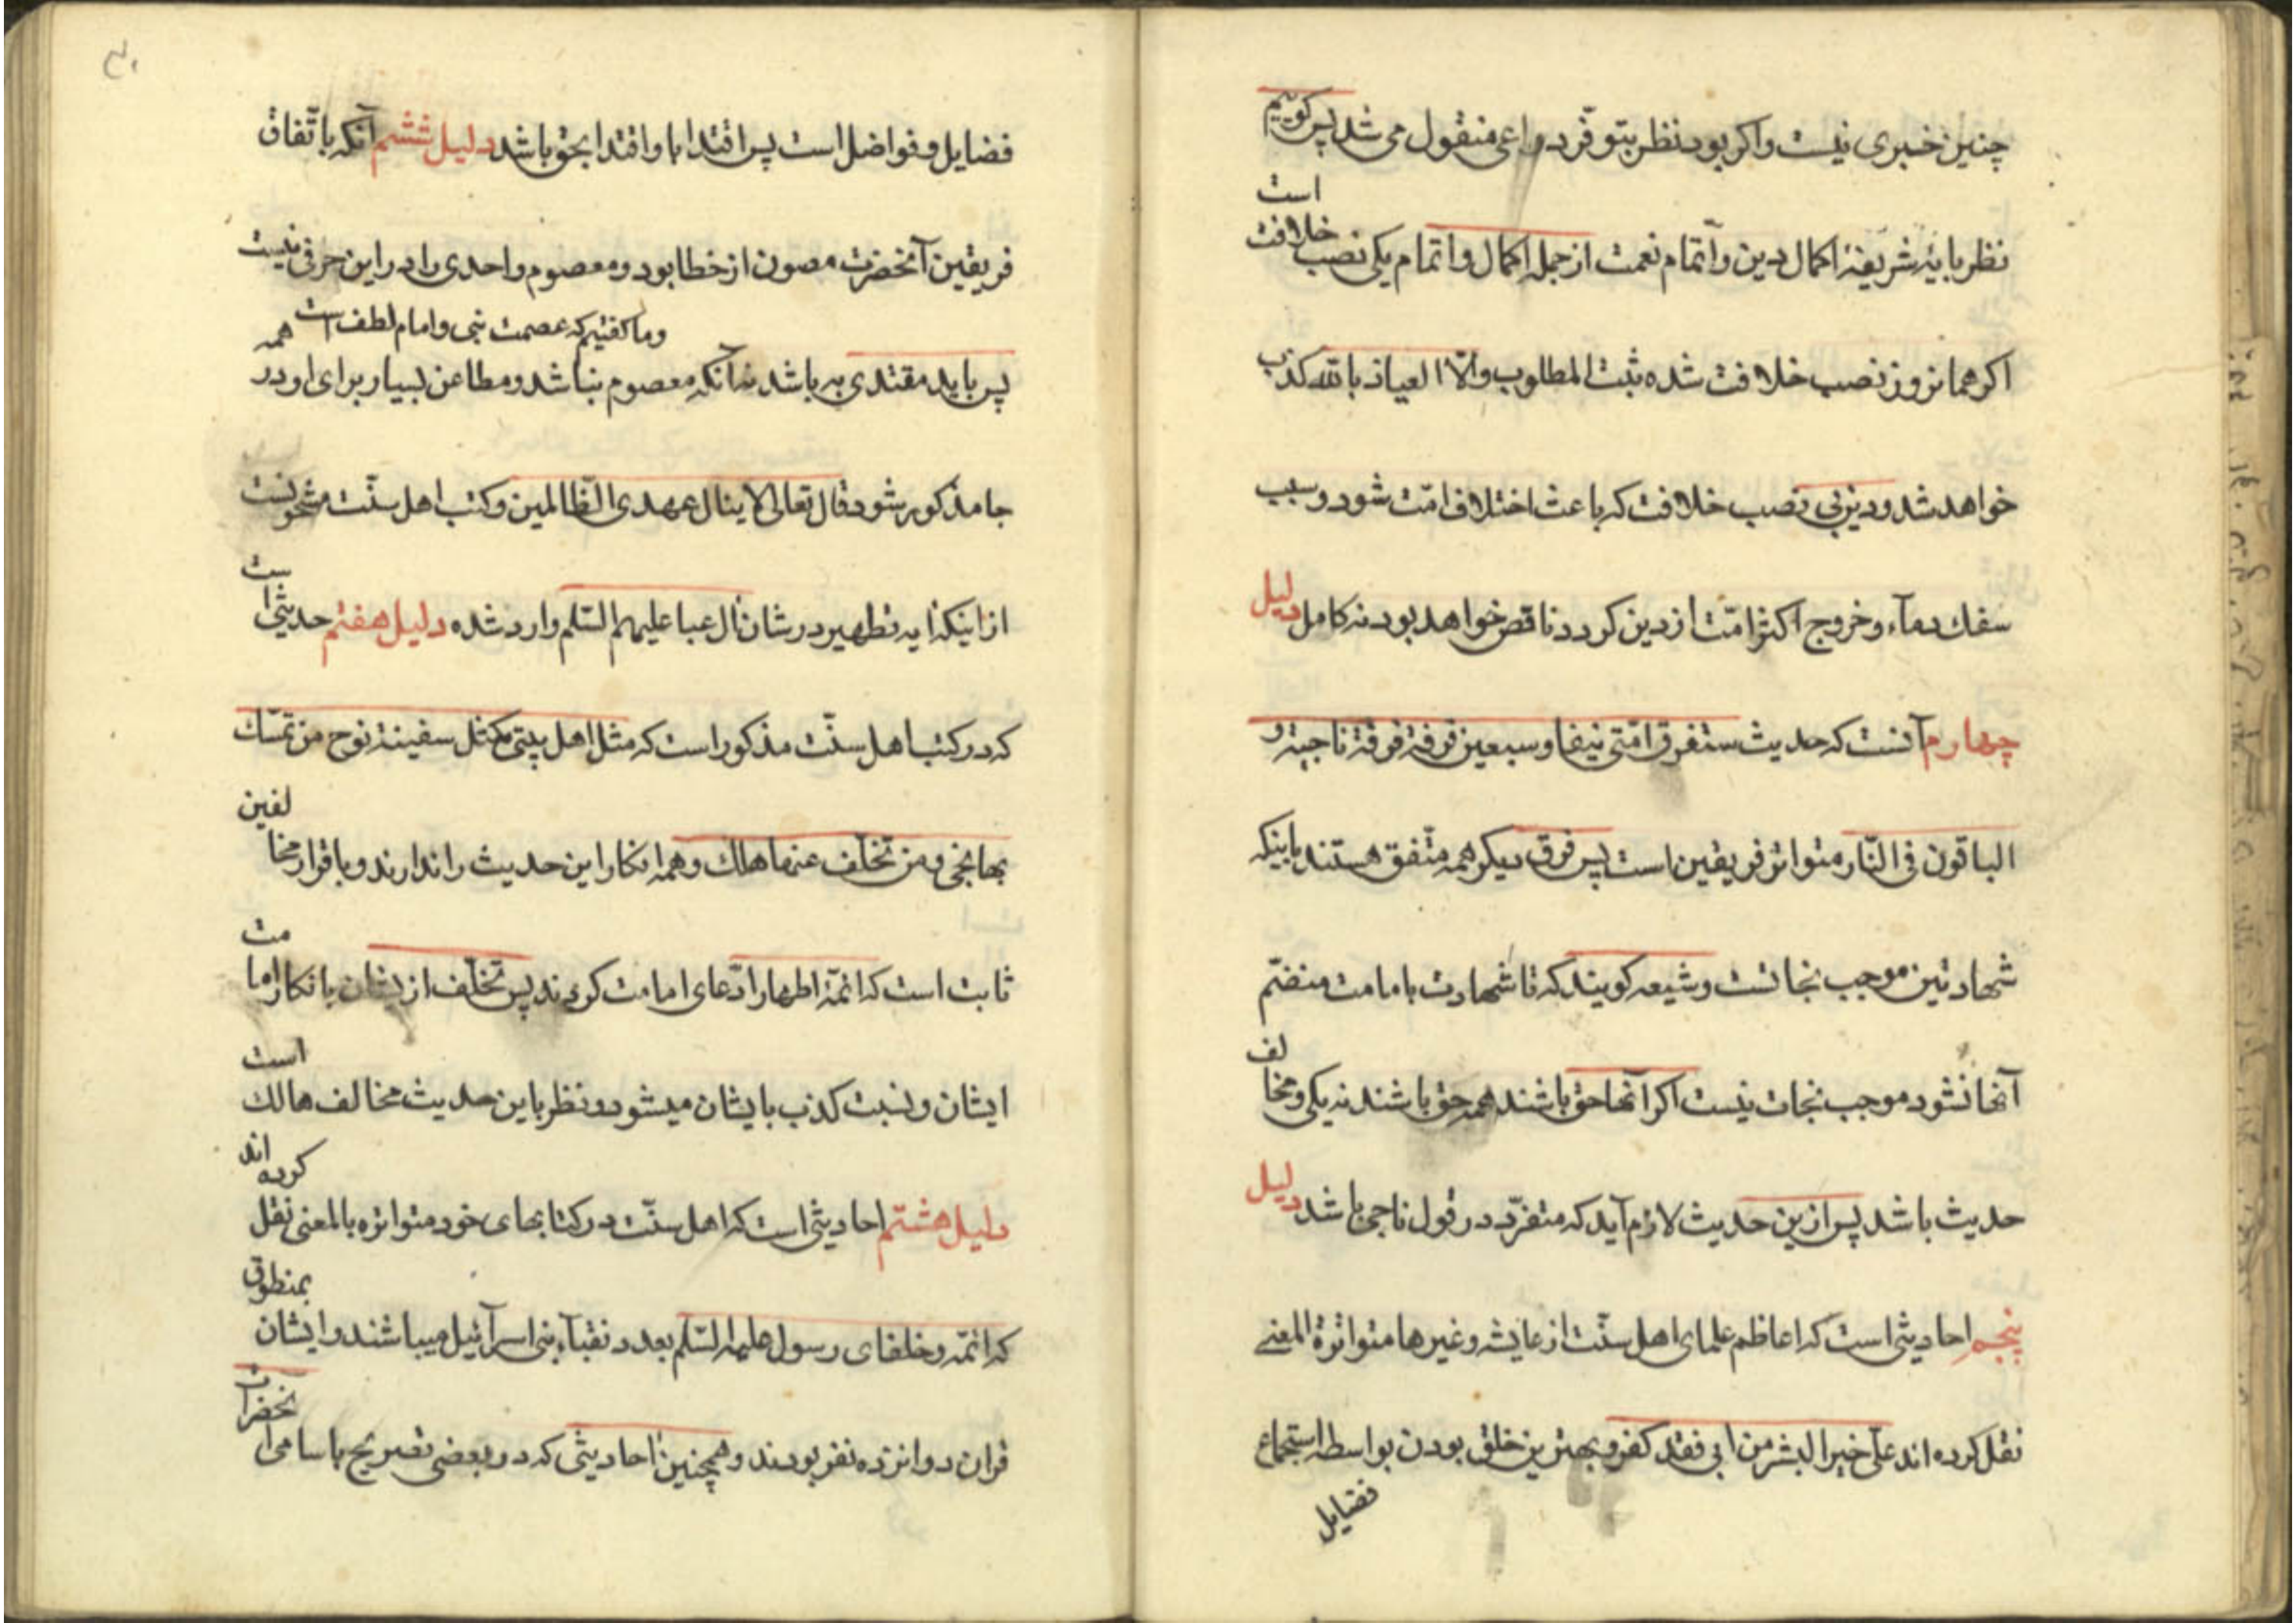 چنین خبری نیست واکر بود نظر بتوفّر دواعی منقول می شد پس کوییم
نظر بایۀ شریفۀ اکمال دین واتمام نعمت از جمله اکمال واتمام یکی نصب خلافت است
اکر همان روز نصب خلافت شده ثبت المطلوب والّا العیاذ بالله کذب
خواهد شد ودین بی نصب خلافت که باعث اختلاف امّت شود وسبب
سفك دمآء وخروج اکثر امّت از دین کردد ناقص خواهد بود نه کامل دلیل
چهارم آنست که حدیث ستفرق امّتی نیفا وسبعین فرقة فرقة ناجیة و
الباقون فی النّار متواتر فریقین است پس فرق دیکر همه متّفق هستند باینکه
شهادتین موجب نجاتست وشیعه کویند که تا شهادت بامامت منضمّ
آنها نشود موجب نجات نیست اکر آنها حق باشند همه حق باشند نه یکی ومخالف
حدیث باشد پس ازین حدیث لازم آید که متفرّد در قول ناجی باشد دلیل
پنجم احادیثی است که اعاظم علمای اهل سنّت از عایشه وغیرها متواترة المعنے
نقل کرده اند علیّ خیر البشر من ابی فقد کفر وبهترین خلق بودن بواسطه استجماع
فضایل
فضایل وفواضل است پس اقتدا باو اقتدا بحق باشد دلیل ششم آنکه باتّفاق
فریقین آنحضرت مصون از خطا بود ومعصوم واحدی را در این حرفی نیست
وما کفتیم که عصمت نبی وامام لطف است همه
پس باید مقتدی به باشد نه آنکه معصوم نباشد ومطاعن بسیار برای او در
جا مذکور شود قال تعالی لا ینال عهدی الظّالمین وکتب اهل سنّت مشحونست
از اینکه ایه تطهیر در شان آل عبا علیهم السّلم وارد شده دلیل هفتم حدیثی است
که در کتب اهل سنّت مذکور است که مثل اهل بیتی کمثل سفینة نوح من تمسّك
بها نجی ومن تخلّف عنها هلك وهمه انکار این حدیث را ندارند وباقرار مخالفین
ثابت است که ائمّۀ اطهار ادّعای امامت کردند پس تخلّف از یشان بانکار امامت
ایشان ونسبت کذب بایشان میشود ونظر باین حدیث مخالف هالك است
دلیل هشتم احادیثی است که اهل سنّت در کتابهای خود متواتره بالمعنی نقل کرده اند
که ائمّه وخلفای رسول علیهم السّلم بعدد نقبآء بنی اسرآئیل میباشند وایشان بمنطوق
قران دوانزده نفر بودند وهمچنین احادیثی که در بعضی تصریح باسامی انحضرات